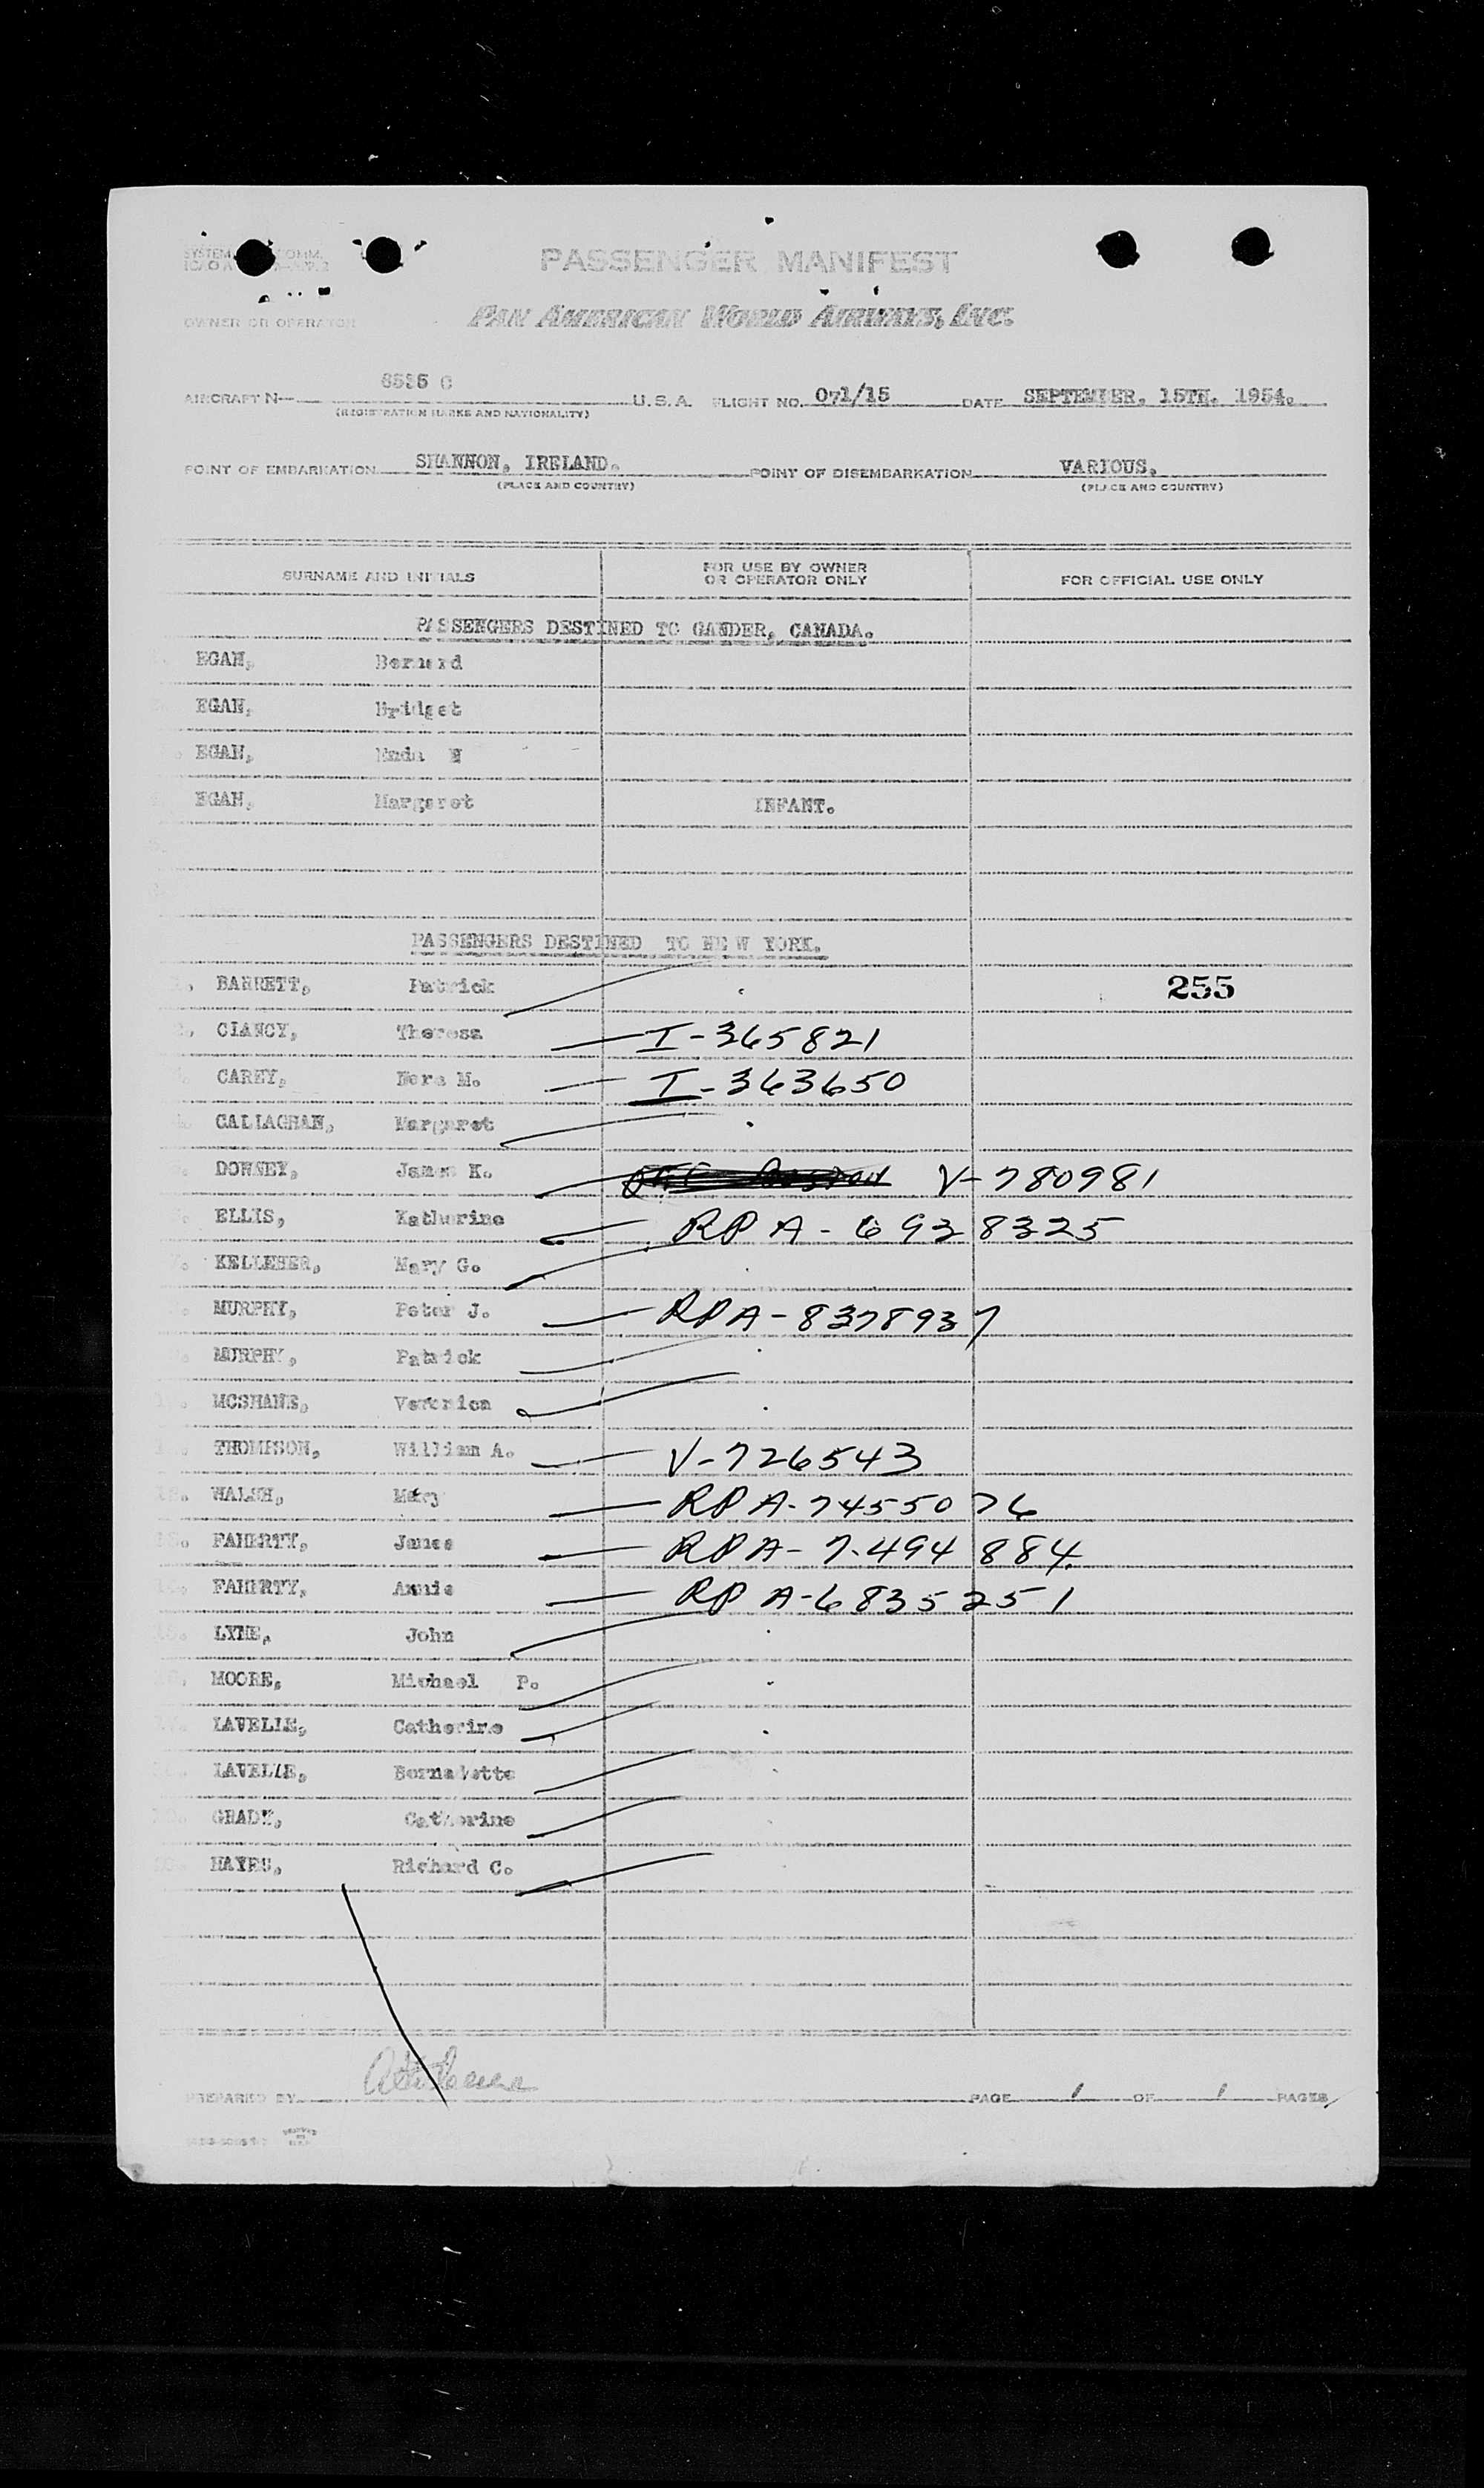 PASSENGER MANIFEST
OWNER OR OPERATOR PAN AMERICAN WORLD AIRWAYS, INC.
AIRCRAFT N— U.S.A. FLIGHT NO. 071/15 DATE SEPTEMBER, 15TH. 1954.
(REGISTRATION MARKS AND NATIONALITY)
POINT OF EMBARKATION SHANNON, IRELAND. POINT OF DISEMBARKATION VARIOUS.
(PLACE AND COUNTRY) (PLACE AND COUNTRY)
SURNAME AND INITIALS FOR USE BY OWNER OR OPERATOR ONLY FOR OFFICIAL USE ONLY
PASSENGERS DESTINED TO GANDER, CANADA.
EGAN, Bernard
EGAN, Bridget
EGAN, Enda
EGAN, Margaret INFANT.
PASSENGERS DESTINED TO NEW YORK.
BARRETT, Patrick 255
CLANCY, Theresa I-365821
CAREY, Nora M. I-363650
CALLAGHAN, Margaret
DOWNEY, James K. V-780981
ELLIS, Katherine RP A-6928325
KELLEHER, Mary G.
MURPHY, Peter J. RPA-8378937
MURPHY, Patrick
MCSHANE, Veronica
THOMPSON, William A. V-726543
12. WALSH, Mary RP A-7455076
13. FAHERTY, James RPA-7494884
14. FAHERTY, Annie RP A-6835251
LYNE, John
MOORE, Michael P.
LAVELLE, Catherine
LAVELLE, Bernadette
GRADY, Catherine
HAYES, Richard C.
PREPARED BY PAGE 1 OF 1 PAGES